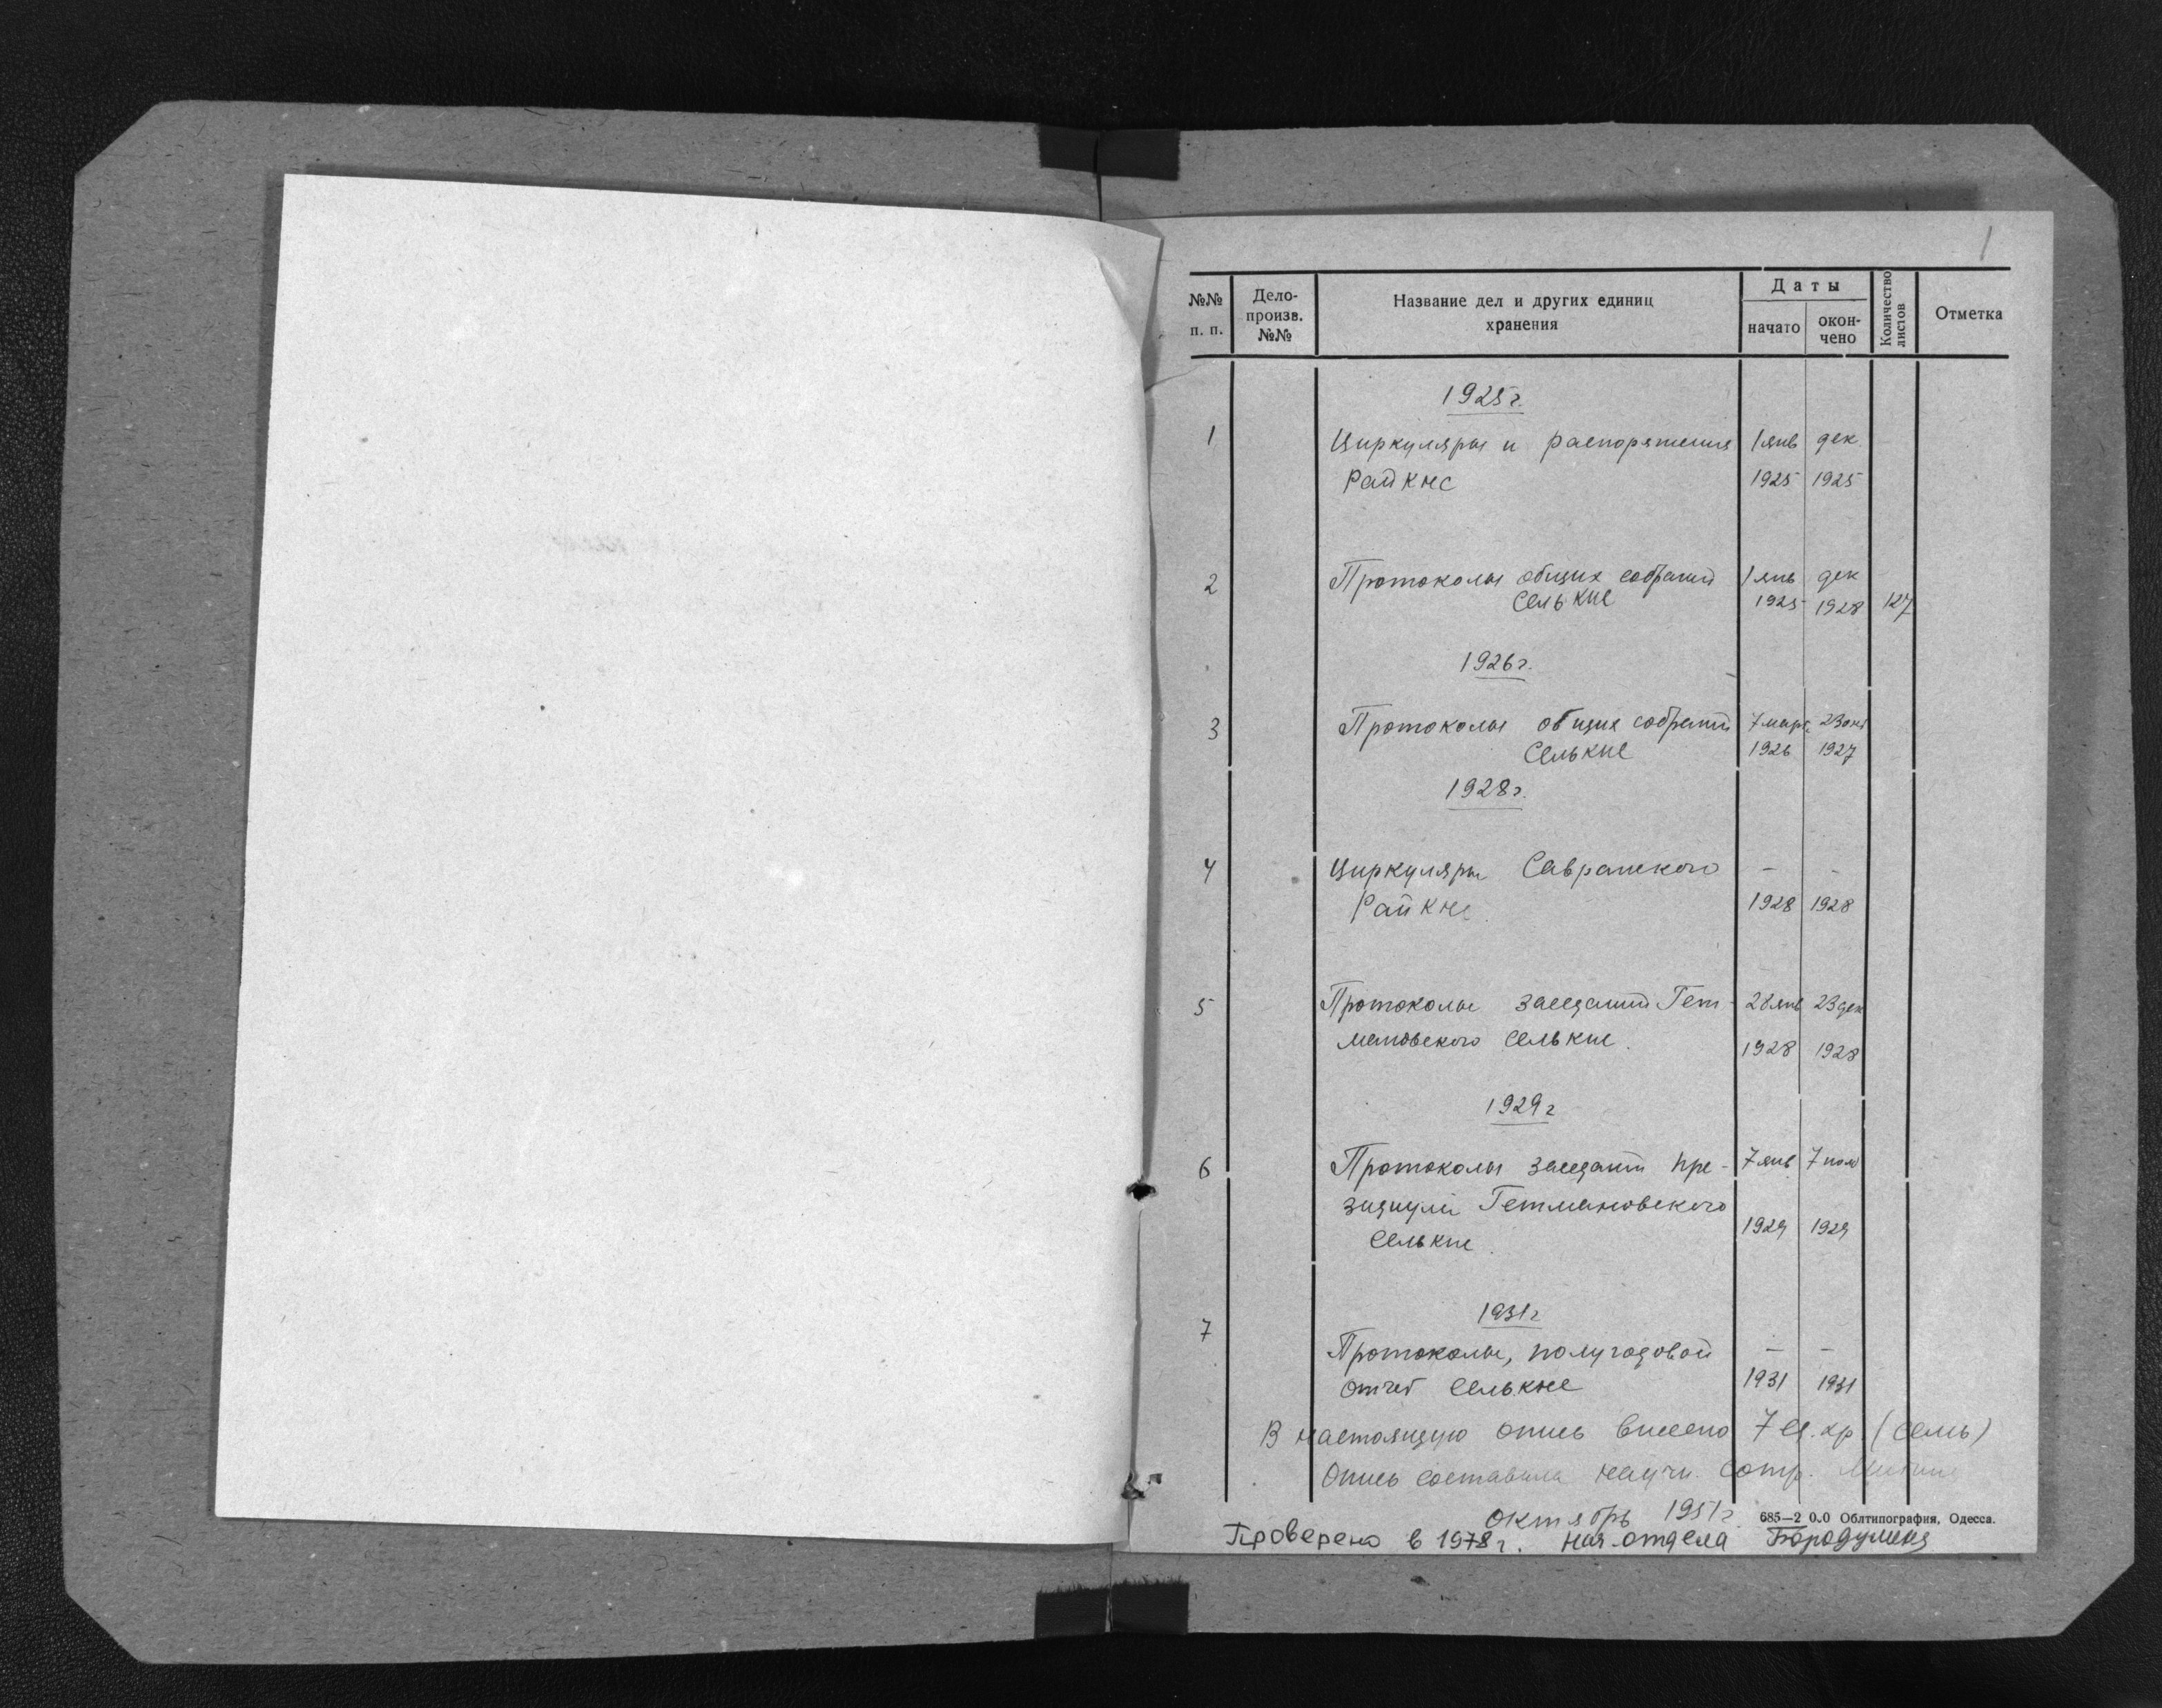 1
№№ п. п.
Дело-
произв.
№№
Название дел и других единиц
хранения
Даты
начато
окон-
чено
Количество
листов
Отметка
1925г.
1 Циркуляры и распоряжения 1 янв дек.
РайКНС 1925 1925
2 Протоколы общих собраний 1 янв дек
СельКНС 1925 1928 127
1926г.
3 Протоколы общих собраний 7 марта 23 окт
СельКНС 1926 1927
1928г.
4 Циркуляры Савранского – –
РайКНС. 1928 1928
5 Протоколы заседаний Гет- 28 янв 23 дек
мановского СельКНС. 1928 1928
1929г
6 Протоколы заседаний пре- 7 янв 7 ноя
зидиума Гетмановского
СельКНС. 1929 1929
1931г
7
Протоколы, полугодовой – –
отчет СельКНС 1931 1931
В настоящую опись внесено 7 ед. хр. (семь)
Опись составила научн. сотр.
октябрь 1951г.
685—2 0.0 Облтипография, Одесса.
Проверено в 1978г. Нач. отдела